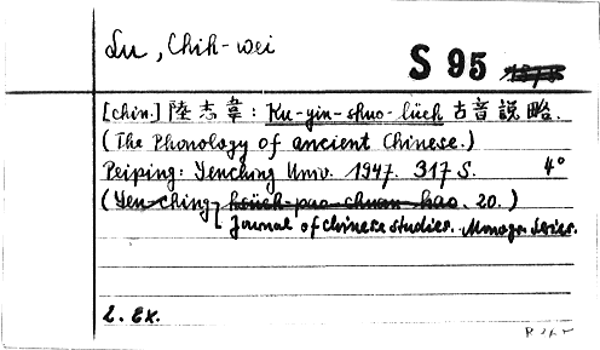 Lu, Chih-wei
S 95
[chin.] 陸志韋: Ku-yin-shuo-lüeh 古音説略.
(The Phonology of ancient Chinese.)
Peiping: Yenching Univ. 1947. 317 S. 4°
(Yen-ching hsüeh-pao-chuan-hao. 20.)
Journal of Chinese studies. Monogr. Series.
2. Ex.